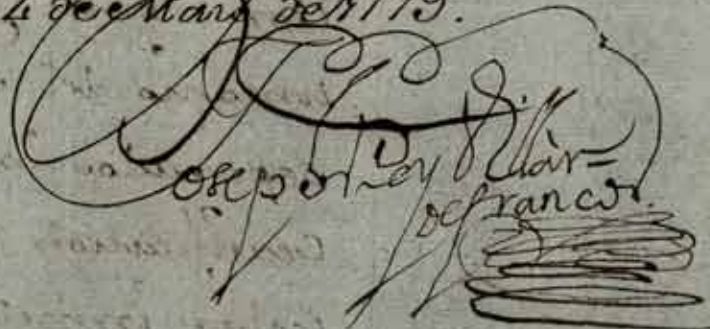 4 de Marzo de 1779.
Joseph Rey Villar=
defrancos.